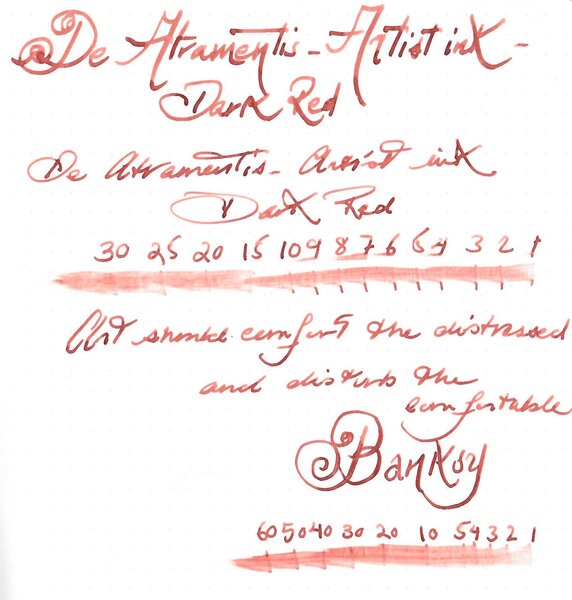 De Atramentis - Artist ink -
Dark Red
De Atramentis - Artist ink
Dark Red
30 25 20 15 10 9 8 7 6 5 4 3 2 1
Art should comfort the distressed
and disturb the
comfortable
Banksy
60 50 40 30 20 10 5 4 3 2 1